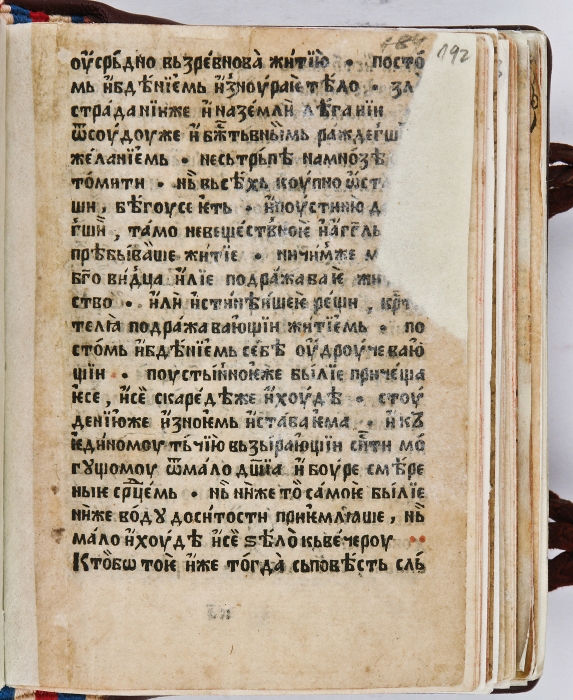 184 192
оу҆срь́дно вьзре́внова̀ житїю̀ • посто́
мь и҆бдѣ́нїемь и҆зноура́ѥ тѣ́ло • зл
страда́нїиже и҆ наземлѝ лѣ́ганїи
ѿсоудоуже и҆ бж҃тьвны́имь ражде́гш
жела́нїемь • несьтрьпѣ̀ намно́зѣ
то́мити • нь̀ вьсѣ́хь коупно ѿст
ши, бѣ́гоусе ѥ҆ть • и҆ поусти́ню д
гшѝ, та́мо невеще́ствноѥ и҆ а҆́гг҃ль
прѣбыва́ше житїе • ничи́мже м
бг҃о ви́дца и҆лїе подра́жаваѥ жи
ство • и҆лѝ и҆́стинѣ́ишеѥ рещи, кр҃ти
телꙗ подра́жава́ющїи житїе́мь • по
сто́мь и҆бдѣ́нїемь се́бѣ оу҆дроуче́ваю
щїи • поусты́нноѥже бы́лїе приче́ща
ѥ҆се, и҆сѐ скаре́дѣже и҆ хоу́дѣ • стоу
де́нїюже и҆ зно́ѥмь и҆ста́ваѥма • и҆ кꙋ
ѥ҆ди́номоу тьчїю вьзыра́ющїи сп҃сти мо
гꙋщомоу ѿ мало дш҃їа и҆ боуре смѣ́ре
ныѥ ср҃це́мь • нь̀ ни́же то̀ само́ѥ бы́лїе
ни́же во́дꙋ доси́тости прїѥмлꙗ́ше, нь̀
ма́ло и҆ хоу́дѣ и҆сѐ ѕѣ́лѡ̀ кьве́чероу ••
Кто́бѡ тоѥ и҆́же то́гда̀ сьповѣ́сть сль